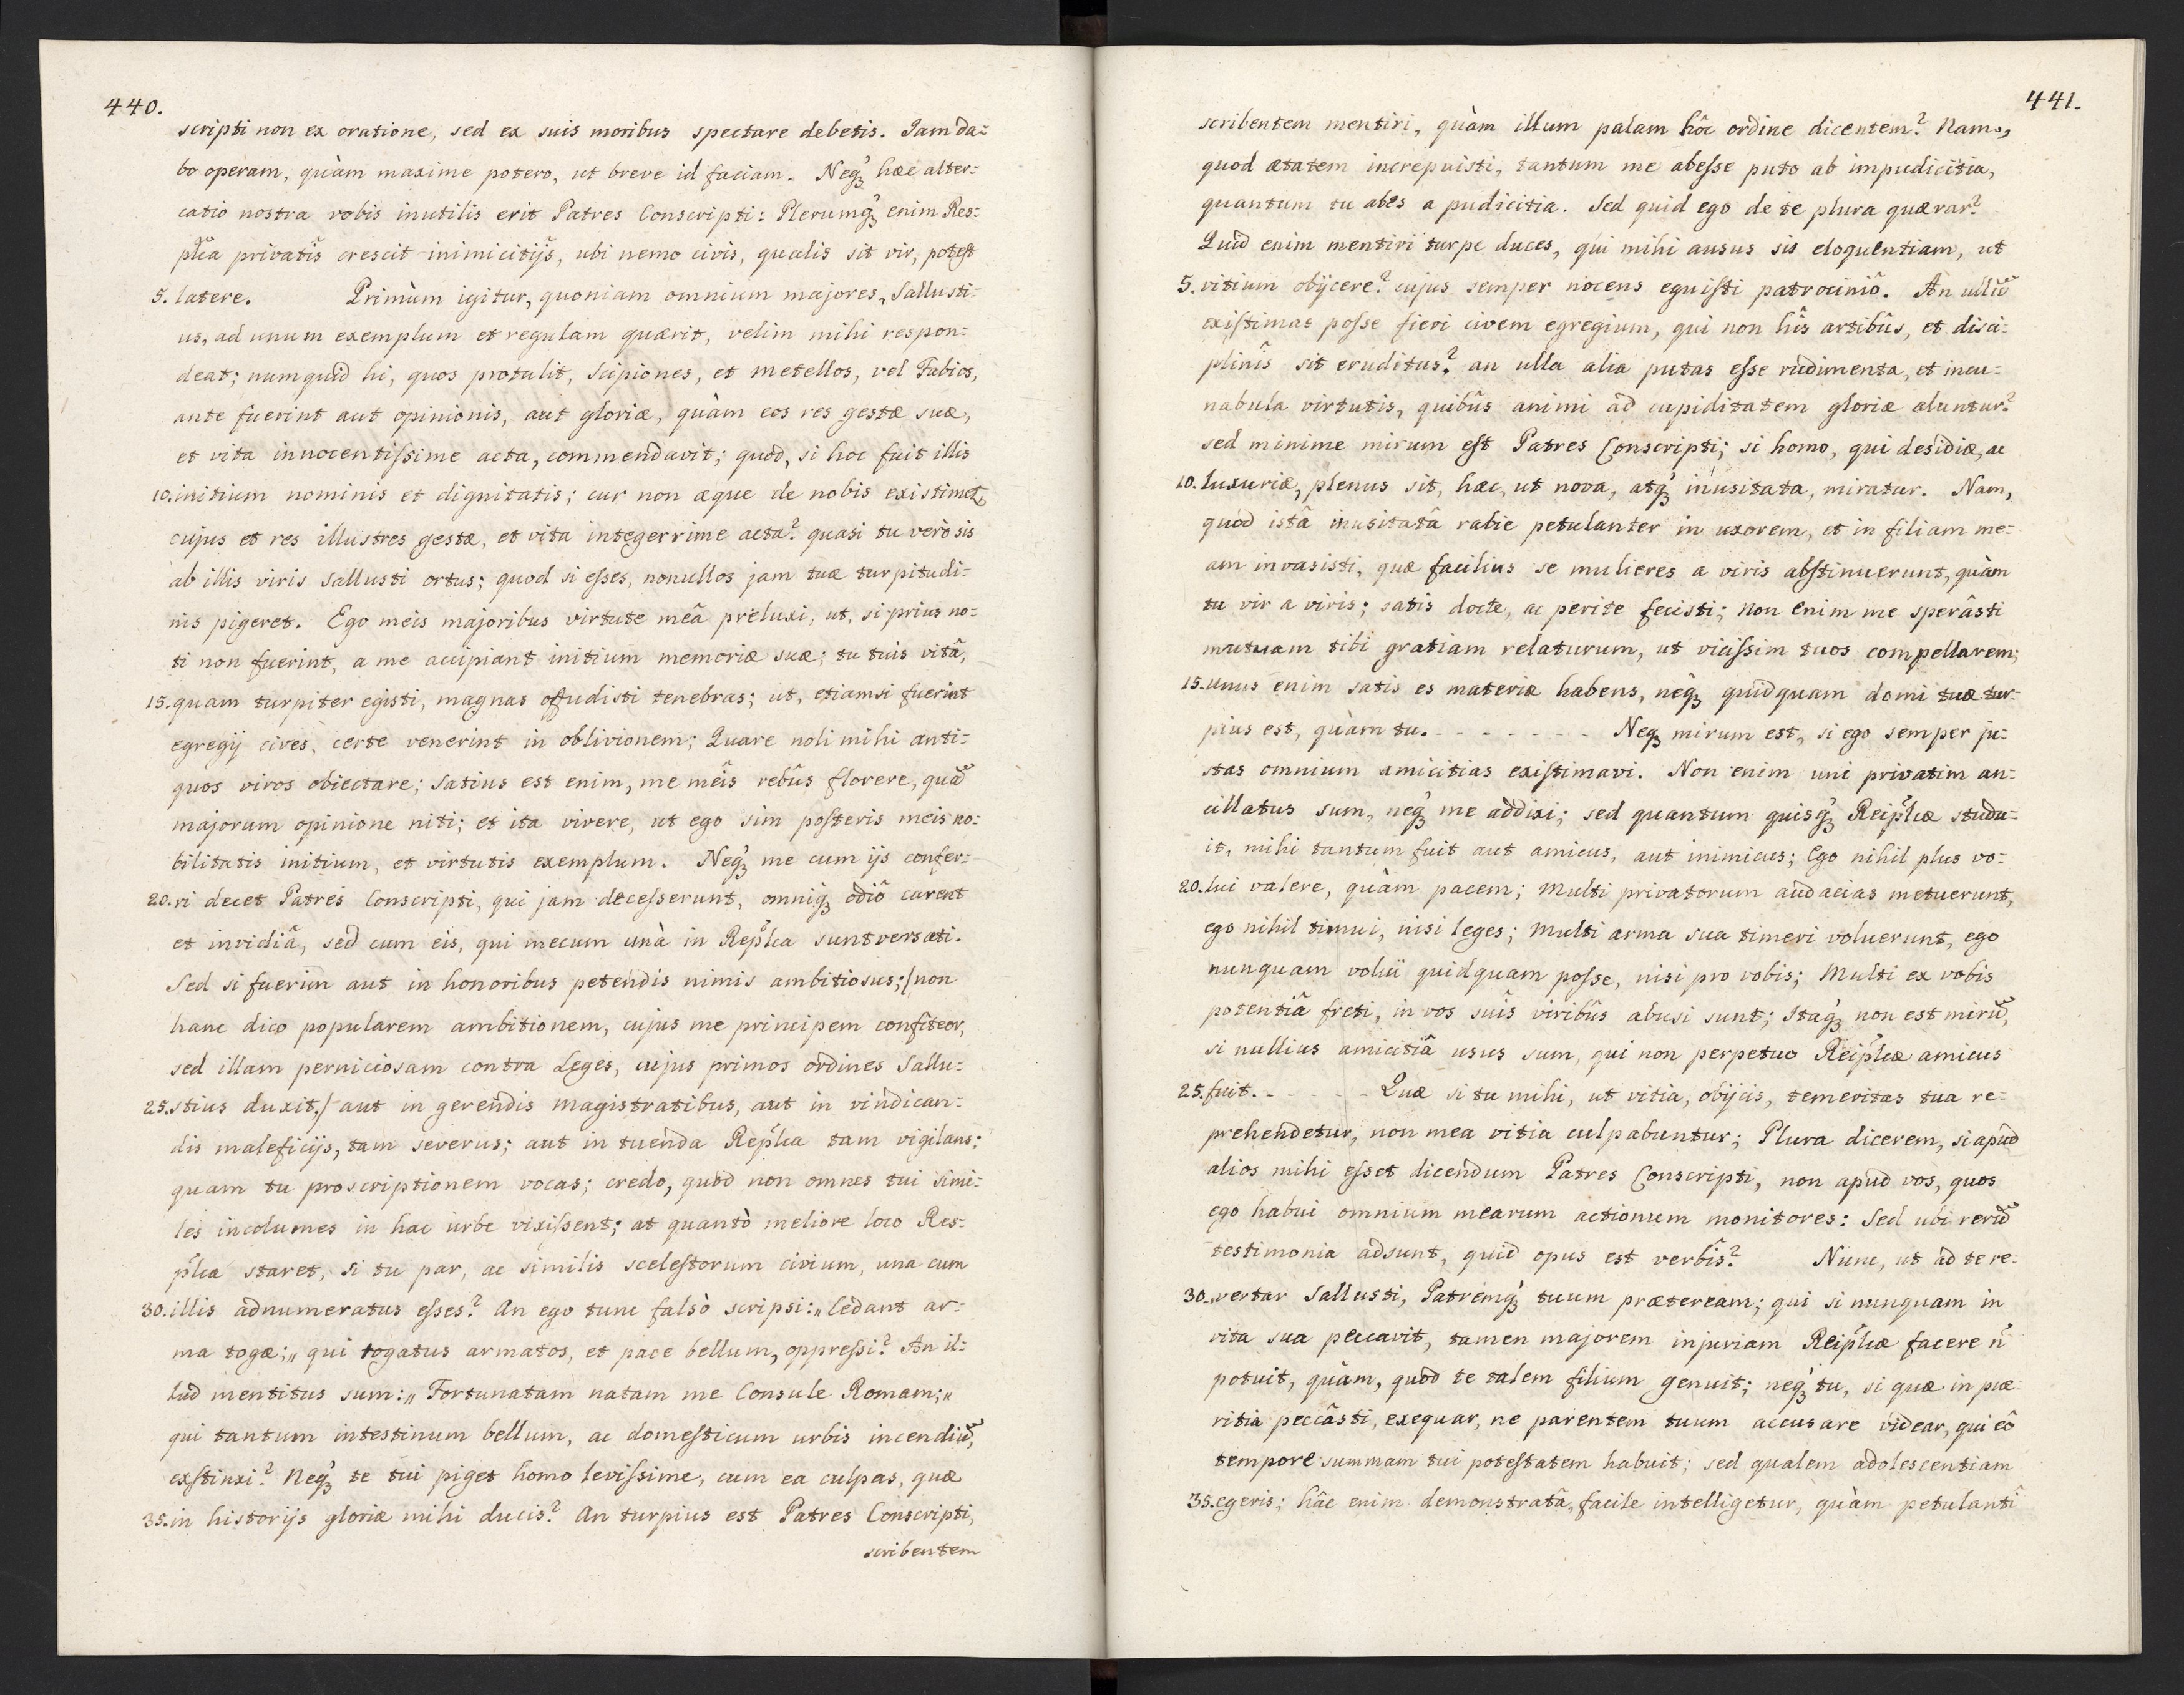 440.
scripti non ex oratione, sed ex suis moribus spectare debetis. Jam da=
bo operam, quàm maxime potero, ut breve id faciam. Neq́ꝫ hæc alter=
catio nostra vobis inutilis erit Patres Conscripti: Plerumq́ꝫ enim Res=
plĩca privatîs crescit inimicitijs, ubi nemo civis, qualis sit vir, poteſt
5. latere. Primùm igitur, quoniam omnium majores, Sallusti=
us, ad unum exemplum et regulam quærit, velim mihi respon=
deat; numquid hi, quos protulit, Scipiones, et metellos, vel Fabios,
ante fuerint aut opinionis, aut gloriæ, quàm eos res gestæ suæ,
et vita innocentiſsime acta, commendavit; quod, si hoc fuit illis
10. initium nominis et dignitatis; cur non æque de nobis existimet,
cujus et res illustres gestæ, et vita integerrime acta? quasi tu verò sis
ab illis viris Sallusti ortus; quod si eſses, nonullos jam tuæ turpitudi=
nis pigeret. Ego meis majoribus virtute meâ preluxi, ut, si prius no=
ti non fuerint, a me accipiant initium memoriæ suæ; tu tuis vitâ,
15. quam turpiter egisti, magnas offudisti tenebras; ut, etiamsi fuerint
egregij cives, certe venerint in oblivionem; Quare noli mihi anti=
quos viros obiectare; Satius est enim, me meîs rebûs florere, quã
majorum opinione niti; et ita vivere, ut ego sim poſteris meis no=
bilitatis initium, et virtutis exemplum. Neq́ꝫ me cum ijs confer=
20. ri decet Patres Conscripti, qui jam deceſserunt, omniq́ꝫ odiô carent
et invidiâ, sed cum eis, qui mecum unà in Replĩca sunt versati.
Sed si fuerim aut in honoribus petendis nimis ambitiosus; /non
hanc dico popularem ambitionem, cujus me principem confiteor,
sed illam perniciosam contra Leges, cujus primos ordines Sallu=
25. stius duxit,/ aut in gerendis magistratibus, aut in vindican=
dis maleficijs, tam severus; aut in tuenda Replĩca tam vigilans;
quam tu proscriptionem vocas; credo, quod non omnes tui simi=
les incolumes in hac urbe vixiſsent; at quantò meliore loco Res=
plĩca staret, si tu par, ac similis sceleſtorum civium, una cum
30. illis adnumeratus eſses? An ego tunc falsò scripsi: „Cedant ar=
ma togæ;„ qui togatus armatos, et pace bellum, oppreſsi? An il=
lud mentitus sum: „Fortunatam natam me Consule Romam;„
qui tantum intestinum bellum, ac domeſticum urbis incendiũ,
exſtinxi? Neq́ꝫ te tui piget homo leviſsime, cum ea culpas, quæ
35. in historijs gloriæ mihi ducis? An turpius est Patres Conscripti,
scribentem
441.
scribentem mentiri, quàm illum palam hôc ordine dicentem? Nam,
quod ætatem increpuisti, tantum me abeſse puto ab impudicitia,
quantum tu abes a pudicitia. Sed quid ego de te plura quærar?
Quid enim mentiri turpe duces, qui mihi ausus sis eloquentiam, ut
5. vitium obijcere? cujus semper nocens eguiſti patrociniô. An ullũ
exiſtimas poſse fieri civem egregium, qui non hîs artibûs, et disci=
plinîs sit eruditus? an ulla alia putas eſse rudimenta, et incu=
nabula virtutis, quibûs animi ad cupiditatem gloriæ aluntur?
sed minime mirum eſt Patres Conscripti; si homo, qui desidiæ, ac
10. luxuriæ, plenus sit, hæc, ut nova, atq́ꝫ inusitata, miratur. Nam,
quod istâ inusitatâ rabie petulanter in uxorem, et in filiam me=
am invasisti, quæ facilius se mulieres a viris abſtinuerunt, quàm
tu vir a viris; satis docte, ac perite fecisti; Non enim me sperâsti
mutuam tibi gratiam relaturum, ut viciſsim tuos compellarem;
15. unus enim satis es materiæ habens, neq́ꝫ quidquam domi tuæ tur=
pius est, quàm tu. - - - - - - - Neqꝫ mirum est, si ego semper ju=
stas omnium amicitias exiſtimavi. Non enim uni privatim an=
cillatus sum, neq́ꝫ me addixi; sed quantum quisq́ꝫ Reiplĩcæ studu=
it, mihi tantum fuit aut amicus, aut inimicus; Ego nihil plus vo=
20. lui valere, quàm pacem; Multi privatorum audacias metuerunt,
ego nihil timui, nisi leges; Multi arma sua timeri voluerunt, ego
nunquam volui quidquam poſse, nisi pro vobis; Multi ex vobis
potentiâ freti, in vos suîs viribûs abusi sunt; Itaq́ꝫ non est mirũ,
si nullius amicitiâ usus sum, qui non perpetuo Reiplĩcæ amicus
25. fuit. - - - - - Quæ si tu mihi, ut vitia, obijcis, temeritas tua re=
prehendetur, non mea vitia culpabuntur; Plura dicerem, si apud
alios mihi eſset dicendum Patres Conscripti, non apud vos, quos
ego habui omnium mearum actionum monitores: Sed ubi rerũ
testimonia adsunt, quid opus est verbîs? Nunc, ut ad te re=
30. vertar Sallusti, Patremq́ꝫ tuum præteream; qui si nunquam in
vita sua peccavit, tamen majorem injuriam Reiplĩcæ facere ñ
potuit, quàm, quod te talem filium genuit; neq́ꝫ tu, si quæ in pue
ritia peccâsti, exequar, ne parentem tuum accusare videar, qui eô
tempore summam tui poteſtatem habuit; sed qualem adolescentiam
35. egeris; hâc enim demonstratâ, facile intelligetur, quàm petulanti